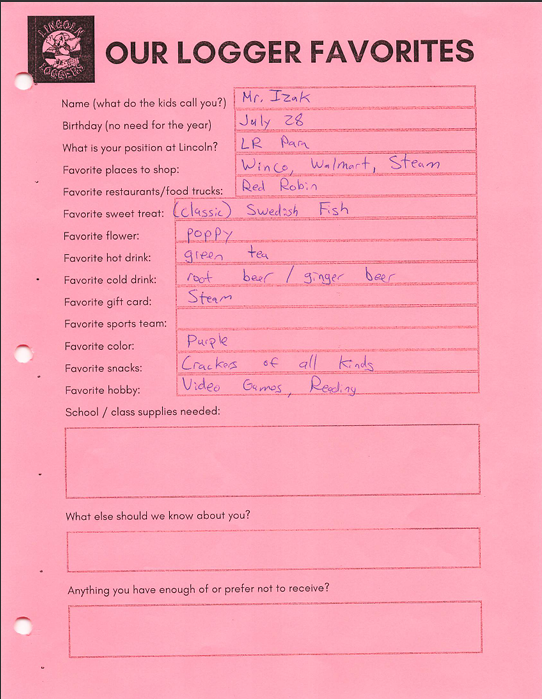 LINCOLN
LOGGERS
OUR LOGGER FAVORITES
Name (what do the kids call you?) Mr. Izak
Birthday (no need for the year) July 28
What is your position at Lincoln? LR Para
Favorite places to shop: Winco, Walmart, Steam
Favorite restaurants/food trucks: Red Robin
Favorite sweet treat: (classic) Swedish Fish
Favorite flower: poppy
Favorite hot drink: green tea
Favorite cold drink: root beer / ginger beer
Favorite gift card: Steam
Favorite sports team:
Favorite color: Purple
Favorite snacks: Crackers of all kinds
Favorite hobby: Video Games, Reading
School / class supplies needed:
What else should we know about you?
Anything you have enough of or prefer not to receive?